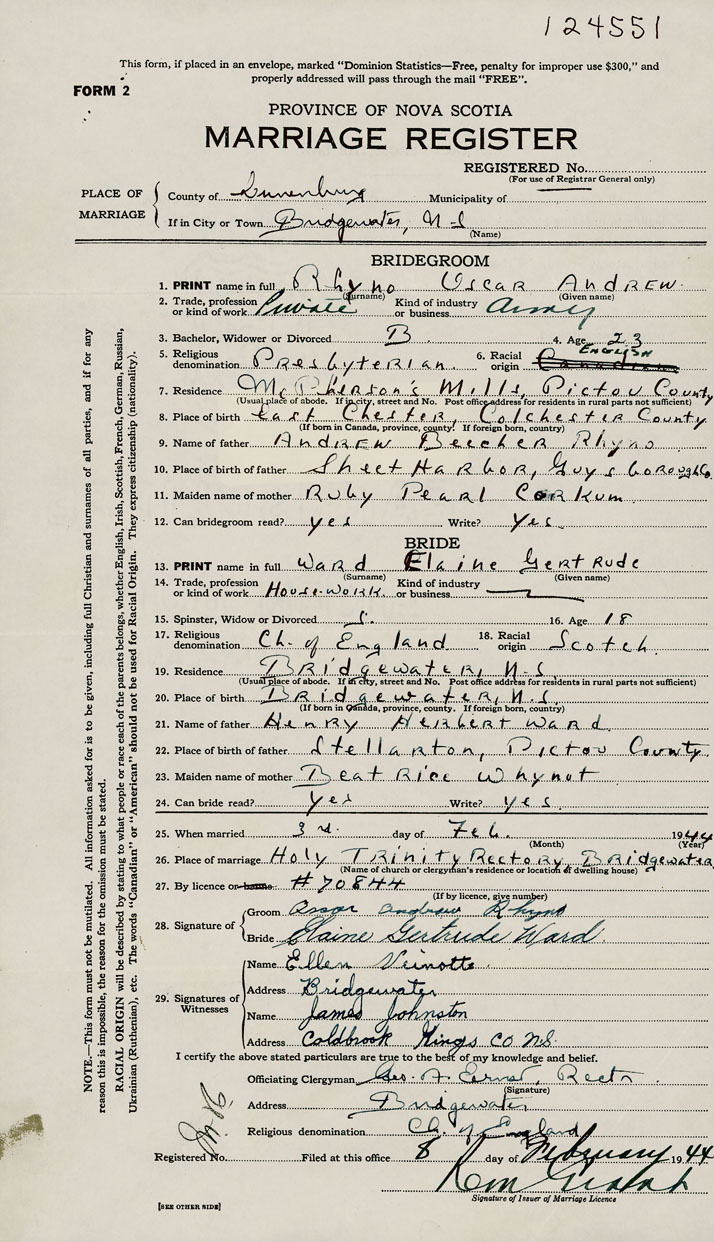 124551
This form, if placed in an envelope, marked "Dominion Statistics—Free, penalty for improper use $300," and
properly addressed will pass through the mail "FREE".
FORM 2
PROVINCE OF NOVA SCOTIA
MARRIAGE REGISTER
REGISTERED No.
(For use of Registrar General only)
PLACE OF MARRIAGE
County of Lunenburg Municipality of
If in City or Town Bridgewater, N.S
(Name)
BRIDEGROOM
1. PRINT name in full Rhyno Oscar Andrew.
(Surname) (Given name)
2. Trade, profession or kind of work Private Kind of industry or business Army
3. Bachelor, Widower or Divorced B. 4. Age 23
5. Religious denomination Presbyterian. 6. Racial origin Canadian English
7. Residence McPherson's Mills, Pictou County
(Usual place of abode. If in city, street and No. Post office address for residents in rural parts not sufficient)
8. Place of birth East Chester, Colchester County
(If born in Canada, province, county. If foreign born, country)
9. Name of father Andrew Beecher Rhyno
10. Place of birth of father Sheet Harbor, Guysborough Co.
11. Maiden name of mother Ruby Pearl Corkum
12. Can bridegroom read? yes Write? Yes.
BRIDE
13. PRINT name in full Ward Elaine Gertrude
(Surname) (Given name)
14. Trade, profession or kind of work House-work. Kind of industry or business
15. Spinster, Widow or Divorced S. 16. Age 18
17. Religious denomination Ch. of England 18. Racial origin Scotch.
19. Residence Bridgewater, N.S
(Usual place of abode. If in city, street and No. Post office address for residents in rural parts not sufficient)
20. Place of birth Bridgewater, N.S
(If born in Canada, province, county. If foreign born, country)
21. Name of father Henry Herbert Ward
22. Place of birth of father Stellarton, Pictou County.
23. Maiden name of mother Beatrice Whynot
24. Can bride read? yes Write? yes.
25. When married 3rd. day of Feb. 1944
(Month) (Year)
26. Place of marriage Holy Trinity Rectory, Bridgewater
(Name of church or clergyman's residence or location of dwelling house)
27. By licence or banns #70844
(If by licence, give number)
28. Signature of
Groom Oscar Andrew Rhyno
Bride Elaine Gertrude Ward.
29. Signatures of Witnesses
Name Ellen Veinotte.
Address Bridgewater
Name James Johnston
Address Coldbrook Kings Co N.S.
I certify the above stated particulars are true to the best of my knowledge and belief.
Officiating Clergyman Geo. A. Ernst, Rector
(Signature)
Address Bridgewater
Religious denomination Ch. of England
Registered No. Filed at this office 8 day of February 1944
Signature of Issuer of Marriage Licence
[SEE OTHER SIDE]
NOTE.—This form must not be mutilated. All information asked for is to be given, including full Christian and surnames of all parties, and if for any
reason this is impossible, the reason for the omission must be stated.
RACIAL ORIGIN will be described by stating to what people or race each of the parents belongs, whether English, Irish, Scottish, French, German, Russian,
Ukrainian (Ruthenian), etc. The words "Canadian" or "American" should not be used for Racial Origin. They express citizenship (nationality).